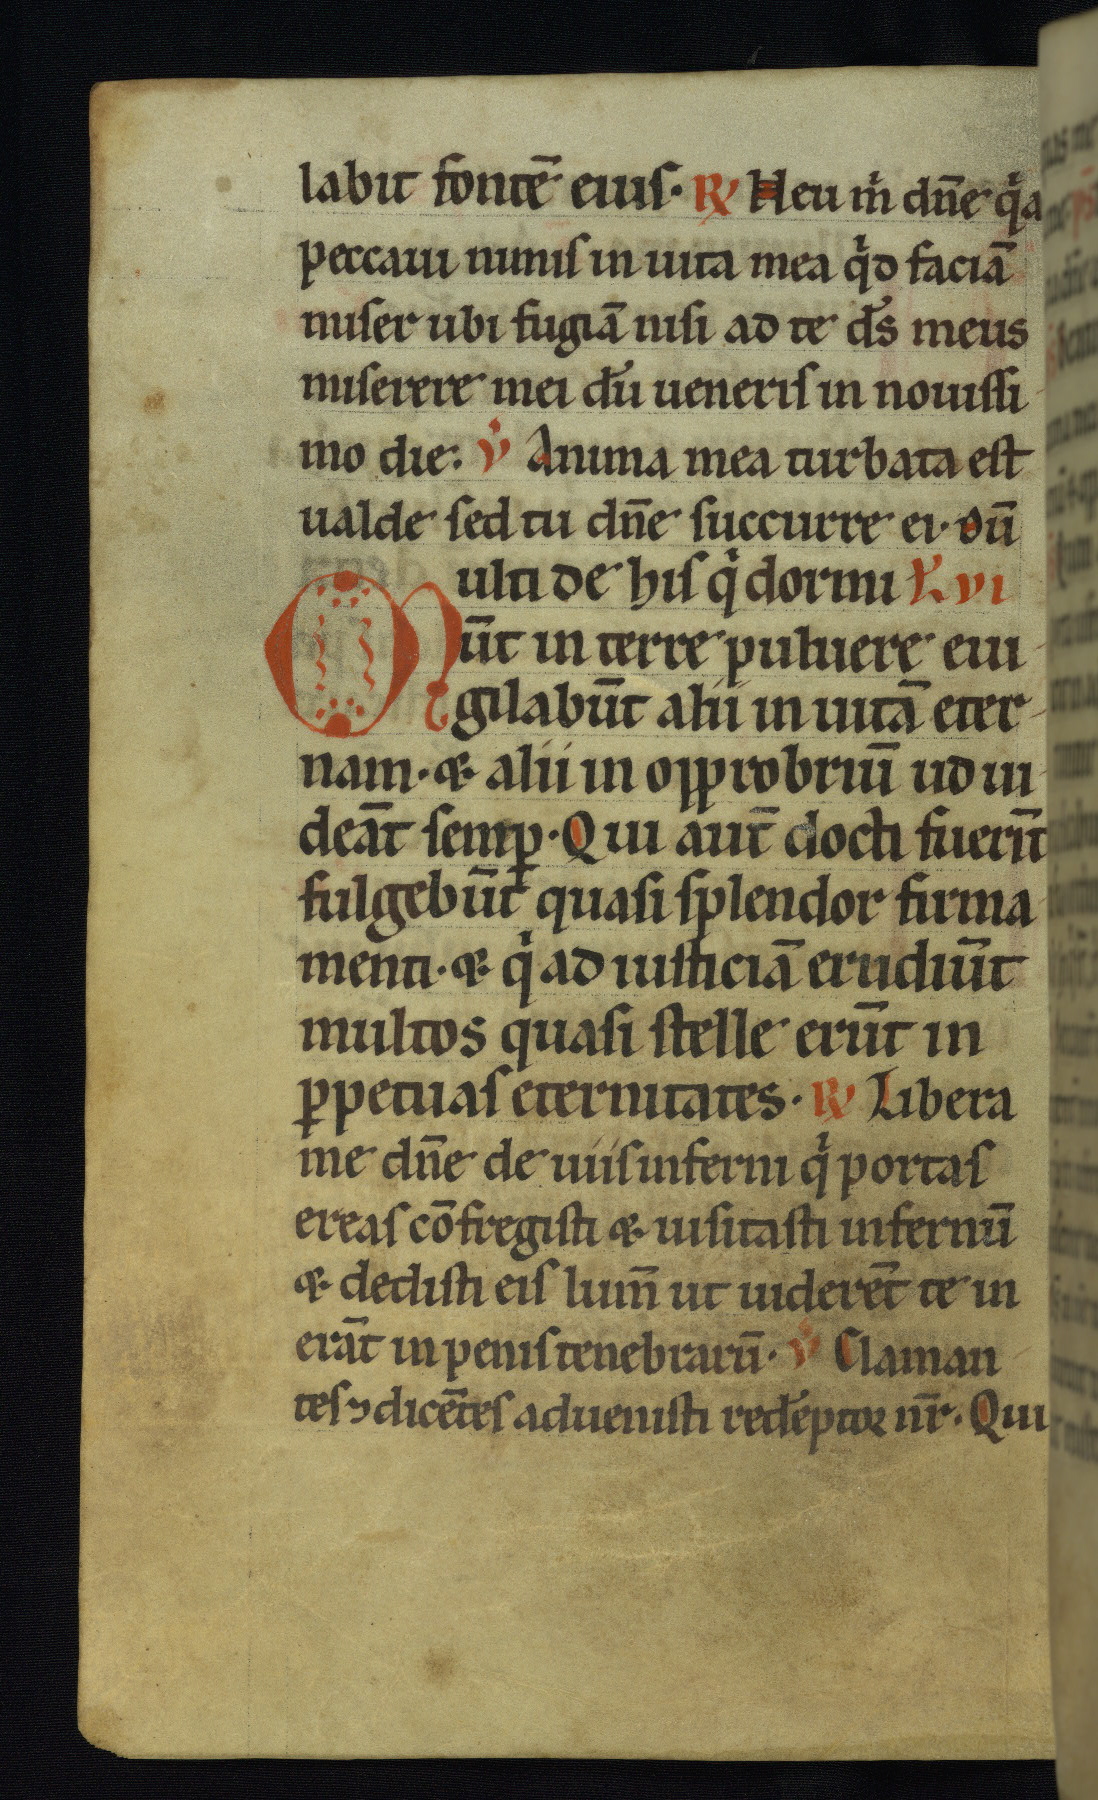 labit fontē eius. ℟ Heu m̉ dn̄e q̉a
peccaui nimis in uita mea q̉d faciā
miser ubi fugiā nisi ad te ds̄ meus
miserere mei dū ueneris in nouissi
mo die. ℣ Anima mea turbata est
ualde sed tu dn̄e succurre ei. Dū
Multi de his q̉ dormi L̄ VI
ūt in terre puluere eui
gilabūt alii in uitā eter
nam. & alii in opprobriū ud ui
deāt semꝑ. Qui aut̄ docti fuerīt
fulgebūt quasi splendor firma
menti. & q̉ ad iusticiā erudiūt
multos quasi stelle erūt in
ꝑpetuas eternitates. ℟ Libera
me dn̄e de uiis inferni q̉ portas
ereas cōfregisti & uisitasti infernū
& dedisti eis lum̄ ut uiderēt te in
erāt in penis tenebrarū. ℣ Claman
tes ⁊ dicētes aduenisti redēptoꝛ nr̄. Qui